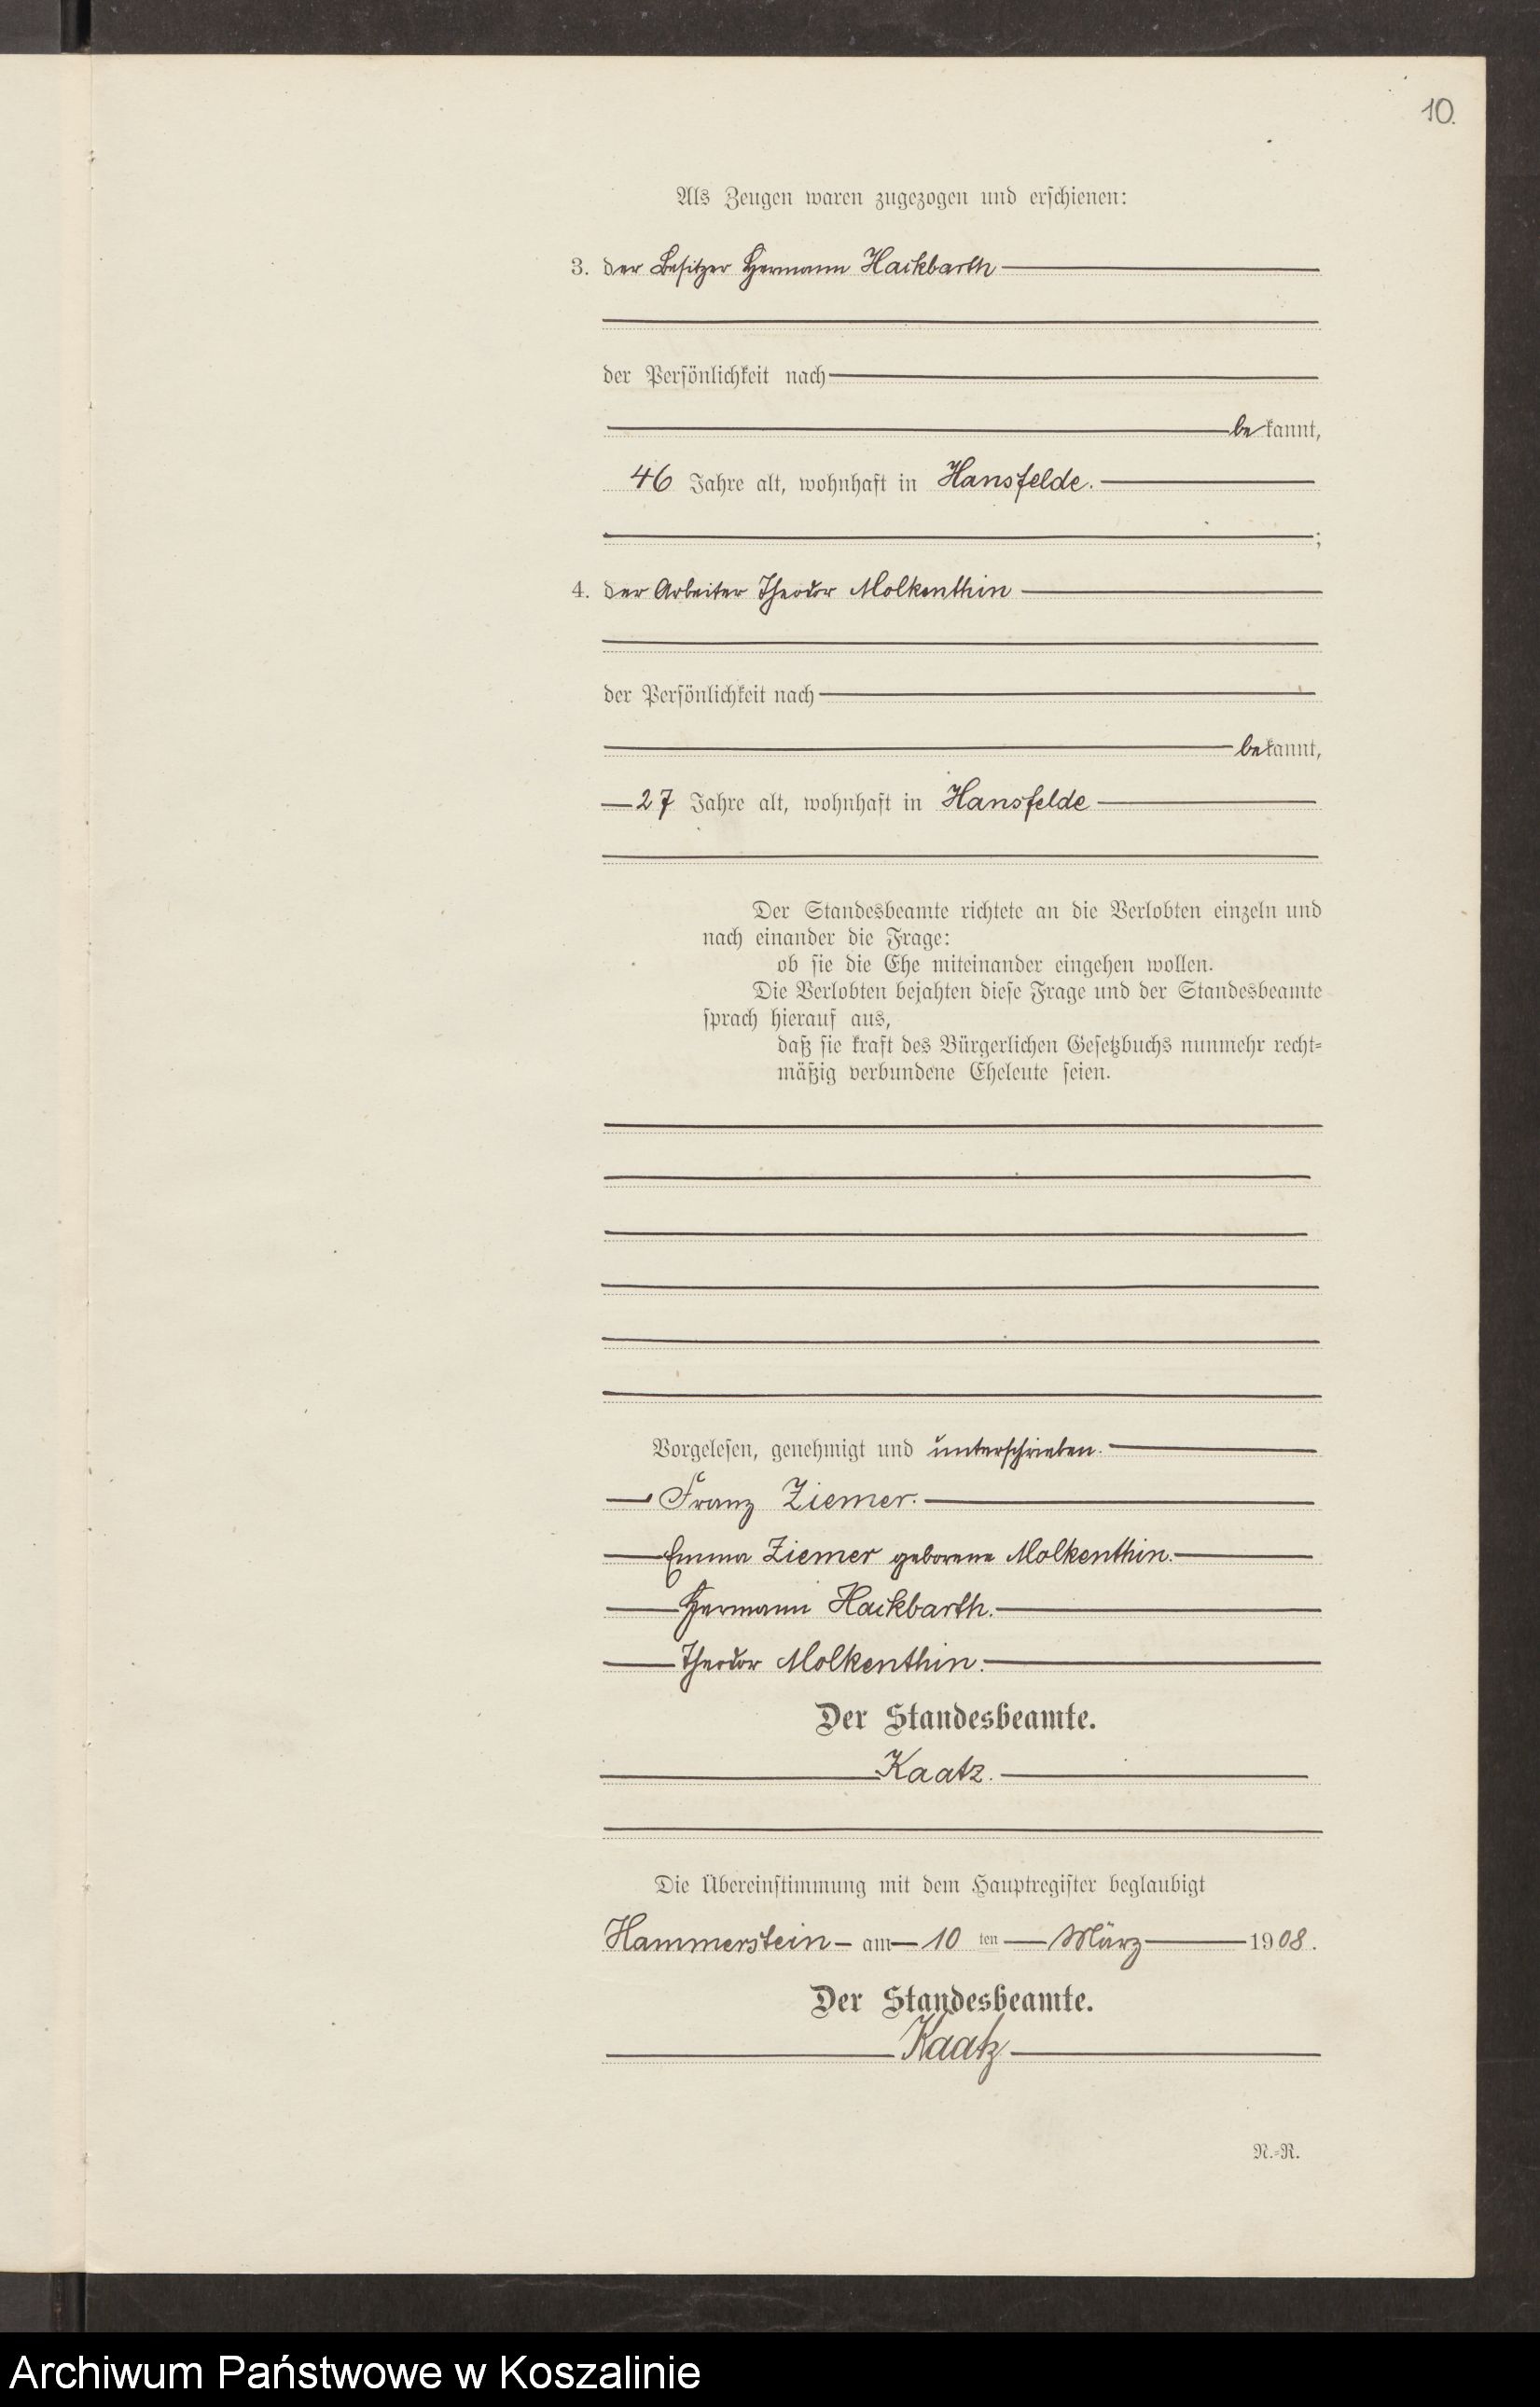 10.
Als Zeugen waren zugezogen und erschienen:
3. der Besitzer Hermann Hackbarth
der Persönlichkeit nach
bekannt,
46 Jahre alt, wohnhaft in Hansfelde.
;
4. der Arbeiter Theodor Molkenthin
der Persönlichkeit nach
bekannt,
27 Jahre alt, wohnhaft in Hansfelde
Der Standesbeamte richtete an die Verlobten einzeln und
nach einander die Frage:
ob sie die Ehe miteinander eingehen wollen.
Die Verlobten bejahten diese Frage und der Standesbeamte
sprach hierauf aus,
daß sie kraft des Bürgerlichen Gesetzbuchs nunmehr recht-
mäßig verbundene Eheleute seien.
Vorgelesen, genehmigt und unterschrieben.
Franz Ziemer.
Emma Ziemer geborene Molkenthin.
Hermann Hackbarth.
Theodor Molkenthin.
Der Standesbeamte.
Kaatz.
Die Übereinstimmung mit dem Hauptregister beglaubigt
Hammerstein am 10 ten März 1908.
Der Standesbeamte.
Kaatz
N.-R.
Archiwum Państwowe w Koszalinie